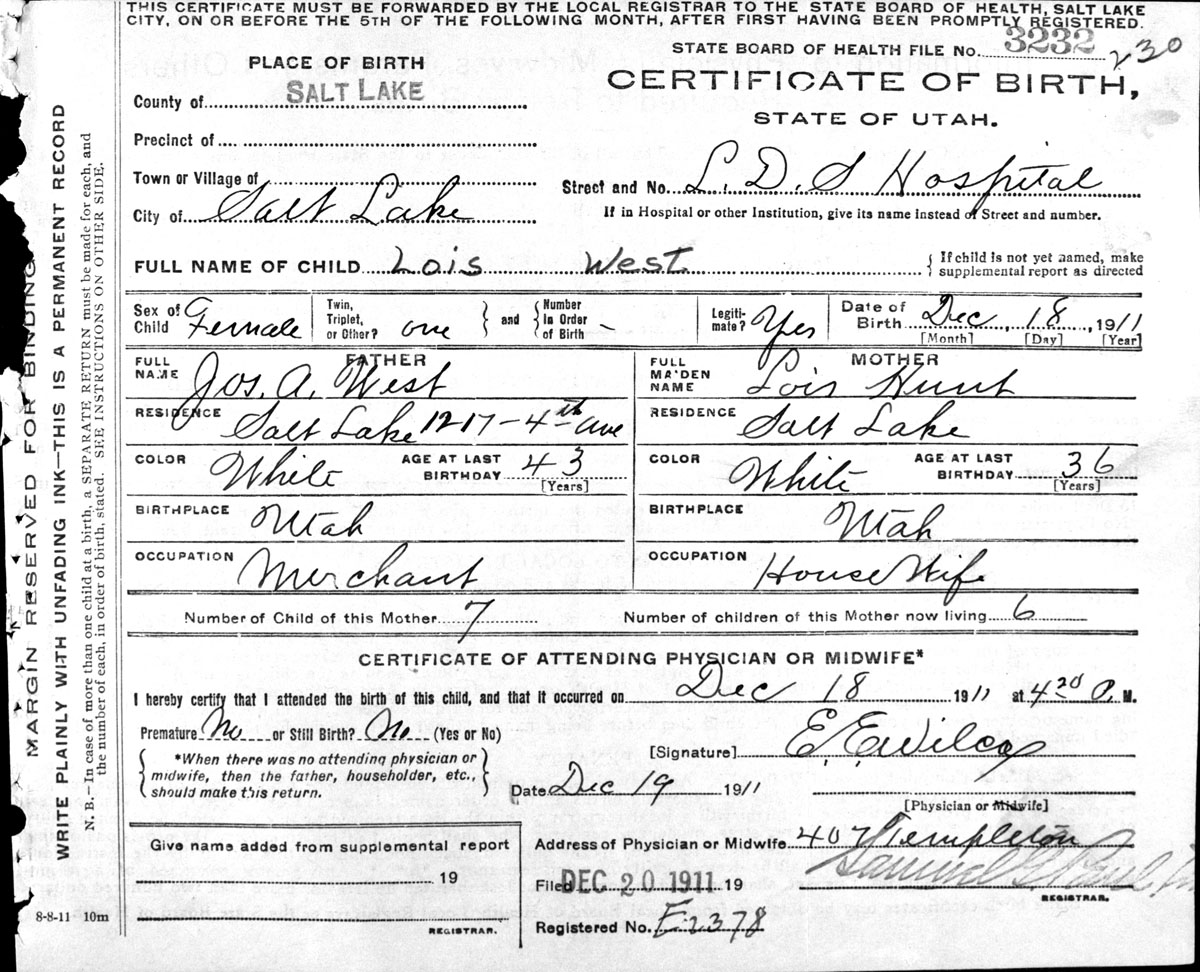 THIS CERTIFICATE MUST BE FORWARDED BY THE LOCAL REGISTRAR TO THE STATE BOARD OF HEALTH, SALT LAKE
CITY, ON OR BEFORE THE 5TH OF THE FOLLOWING MONTH, AFTER FIRST HAVING BEEN PROMPTLY REGISTERED.
STATE BOARD OF HEALTH FILE No. 3232 230
PLACE OF BIRTH
CERTIFICATE OF BIRTH,
County of SALT LAKE
STATE OF UTAH.
Precinct of
Town or Village of
Street and No. L. D. S Hospital
City of Salt Lake
If in Hospital or other Institution, give its name instead of Street and number.
FULL NAME OF CHILD Lois West
If child is not yet named, make
supplemental report as directed
Sex of Child Female
Twin, Triplet, or Other? one
and
Number In Order of Birth –
Legiti-mate? Yes
Date of Birth Dec, 18, 1911
[Month] [Day] [Year]
FATHER
FULL NAME Jos. A. West
MOTHER
FULL MAIDEN NAME Lois Hunt
RESIDENCE Salt Lake 1217-4th ave
RESIDENCE Salt Lake
COLOR White AGE AT LAST BIRTHDAY 43 [Years]
COLOR White AGE AT LAST BIRTHDAY 36 [Years]
BIRTHPLACE Utah
BIRTHPLACE Utah
OCCUPATION Merchant
OCCUPATION House Wife
Number of Child of this Mother 7
Number of children of this Mother now living 6
CERTIFICATE OF ATTENDING PHYSICIAN OR MIDWIFE*
I hereby certify that I attended the birth of this child, and that it occurred on Dec 18 1911 at 4 20 P. M.
Premature No or Still Birth? No (Yes or No)
[Signature] E. E. Wilcox
*When there was no attending physician or
midwife, then the father, householder, etc.,
should make this return.
Date Dec 19 1911
[Physician or Midwife]
Address of Physician or Midwife 407 Templeton
Give name added from supplemental report
19
REGISTRAR.
Filed DEC 20 1911 19
Samuel G. Paul
REGISTRAR.
Registered No. E2378
8-8-11 10m
MARGIN RESERVED FOR BINDING
WRITE PLAINLY WITH UNFADING INK—THIS IS A PERMANENT RECORD
N. B.—In case of more than one child at a birth, a SEPARATE RETURN must be made for each, and
the number of each, in order of birth, stated. SEE INSTRUCTIONS ON OTHER SIDE.